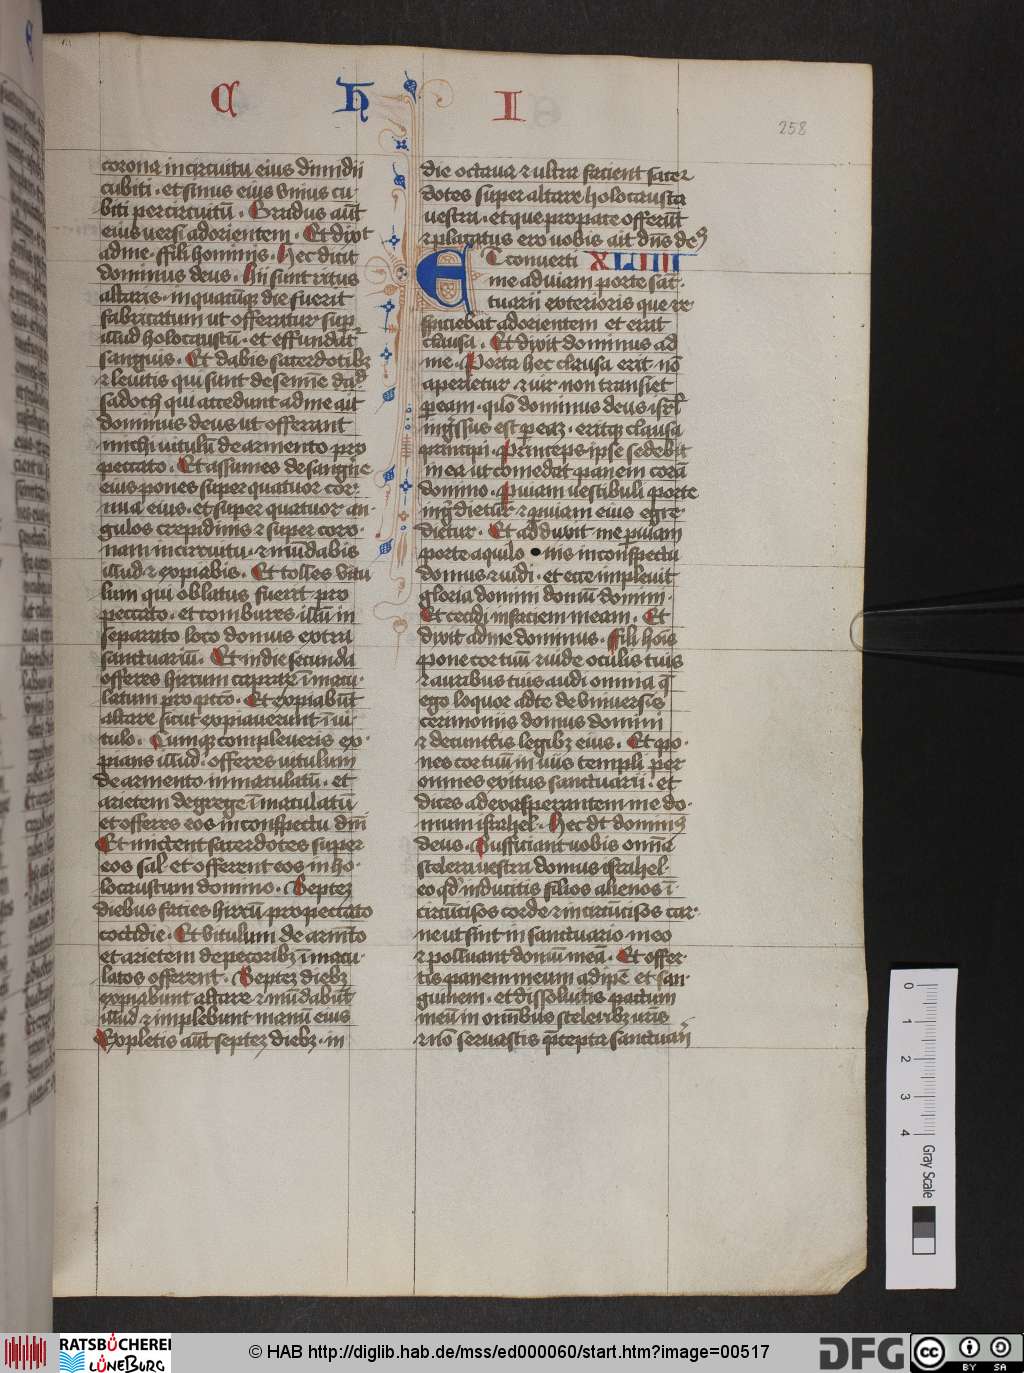 C H I
258
corona in circuitu eius dimidii
cubiti · et sinus eius vnius cu-
biti per circuitū · Gradus aūt
eius versi ad orientem · Et dixit
ad me · ffili hominis · hec dicit
dominus deus · hii sunt ritus
altaris · in quacūq; die fuerit
fabricatum ut offeratur sup
illud holocaustū · et effundat᷑
sanguis · Et dabis sacerdotibꝫ
⁊ leuitis qui sunt de semine
sadoch qui accedunt ad me ait
dominus deus ut offerant
michi vitulū de armento pro
peccato · Et assumes de sangīne
eius pones super quatuor cor-
nua eius · et super quatuor an-
gulos crepidinis ⁊ super coro-
nam in circuitu · ⁊ mūdabis
illud ⁊ expiabis · Et tolles vitu
lum qui oblatus fuerit pro
peccato · et combures illū in
separato loco domus extra
sanctuariū · Et in die secunda
offeres hircum caprarꝝ īmacu-
latum pro pctō · Et expiabūt
altare sicut expiauerunt ī vi-
tulo · Cumq; compleueris ex-
pians illud · offeres vitulum
de armento inmaculatū · et
arietem de grege īmaculatū
et offeres eos in conspectu dn̄i
Et mictent sacerdotes super
eos sal · et offerent eos in ho-
locaustum domino · Septeꝫ
diebus facies hircū pro peccato
cottidie · Et vitulum de armēto
et arietem de pecoribꝫ īmacu-
latos offerent · Septeꝫ diebꝫ
expiabunt altare ⁊ mūdabūt
illud ⁊ implebunt manū eius
Expletis aūt septeꝫ diebꝫ · in
die octaua ⁊ ultra facient sacer
dotes super altare holocausta
vestra · et que pro pace offerūt
⁊ placatus ero vobis ait dn̄s deꝰ
ET conuerti XLIIII
me ad viam porte san̄c-
tuarii exterioris que re-
spiciebat ad orientem et erat
clausa · Et dixit dominus ad
me · Porta hec clausa erit · nō
aperietur ⁊ vir non transiet
ꝑ eam · qm̄ dominus deus isrl̄
ingressus est ꝑ eaꝫ · eritq; clausa
principi · Princeps ipse sedebit
in ea ut comedat panem corā
domino · ꝑ viam vestibuli porte
ingredietur ⁊ ꝑ viam eius egre-
dietur · Et adduxit me ꝑ viam
porte aquilo nis in conspectu
domus · ⁊ vidi · et ecce impleuit
gloria domini domū domini ·
Et cecidi in faciem meam · Et
dixit ad me dominus · ffili hōis
pone cor tuū ⁊ vide oculis tuis
⁊ auribus tuis audi omnia q̄
ego loquor ad te de vniuersis
cerimoniis domus domini
⁊ de cunctis legibꝫ eius · Et po-
nes cor tuū in viis templi per
omnes exitus sanctuarii · et
dices ad exasperantem me do-
mum israhel · Hec dt̄ dominꝰ
deus · Sufficiant vobis omīa
scelera vestra domus israhel
eo qd̄ inducitis filios alienos ī-
circūcisos corde ⁊ incircūcisos car-
ne ut sint in sanctuario meo
⁊ polluant domū meā · Et offer-
tis panem meum adipē et san-
guinem · et dissoluitis pactum
meū in omībus sceleribꝫ vr̄is
⁊ nō seruastis p̄cepta sanctuarī
0 1 2 3 4
Gray Scale
RATSBÜCHEREI
LÜNEBURG
© HAB http://diglib.hab.de/mss/ed000060/start.htm?image=00517
DFG
cc BY SA